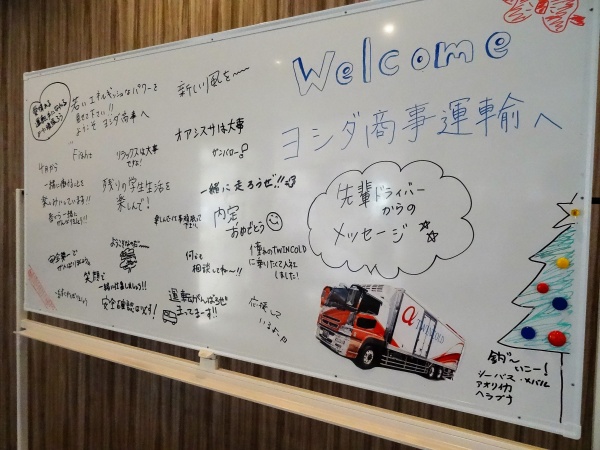 Welcome
ヨシダ商事運輸へ
先輩ドライバー
からの
メッセージ
若いエネルギッシュなパワーを
ようこそ ヨシダ商事へ
新しい風を〜〜
オアシスサは大事
ガンバロー
Fight
リラックスは大事
ですよ!
4月から
一緒に働けることを
楽しみにしています!!
残りの学生生活を
楽しんで!
一緒に走ろうぜ!!
内定
おめでとう
何でも
相談してね〜!!
TWINCOLD
に乗りたくて入社
しました!
笑顔で
安全確認は必ず!
運転がんばろぜ
まってるーす!!
応援して
いるよ
α TWINCOLD
釣り〜
いこー!
シーバス・メバル
アオリイカ
ヘラブナ